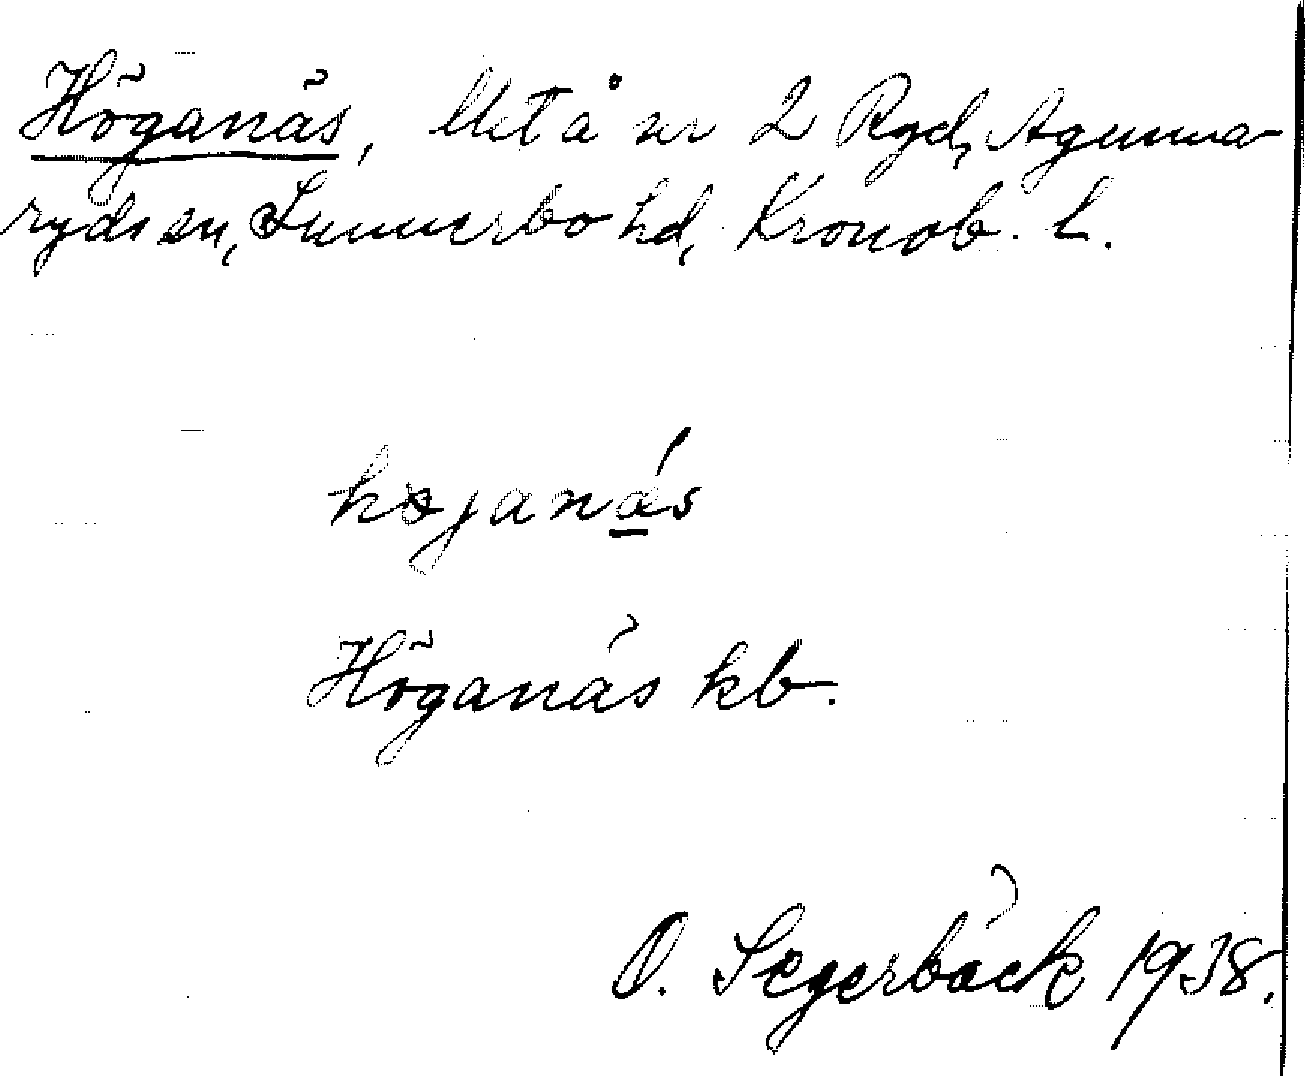 Höganäs, lht å nr 2 Ryd, Agunna-
ryds sn, Sunnerbo hd, Kronob. l.
höganäs
Höganäs kb.
O. Segerbäck 1938.